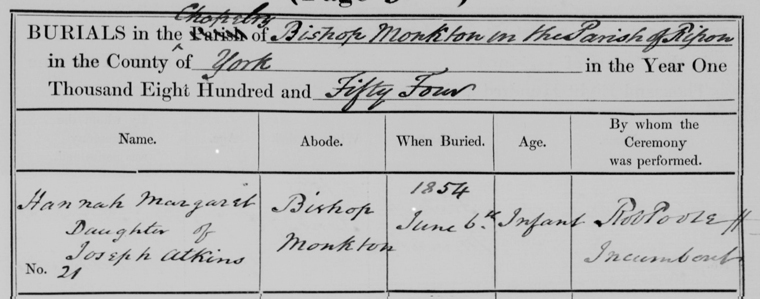 Chapelry
BURIALS in the Parish of Bishop Monkton in the Parish of Ripon
in the County of York in the Year One
Thousand Eight Hundred and Fifty Four
Name. Abode. When Buried. Age. By whom the Ceremony was performed.
Hannah Margaret
Daughter of
Joseph Atkins
No. 21
Bishop
Monkton
1854
June 6th
Infant
Robt Poole
Incumbent